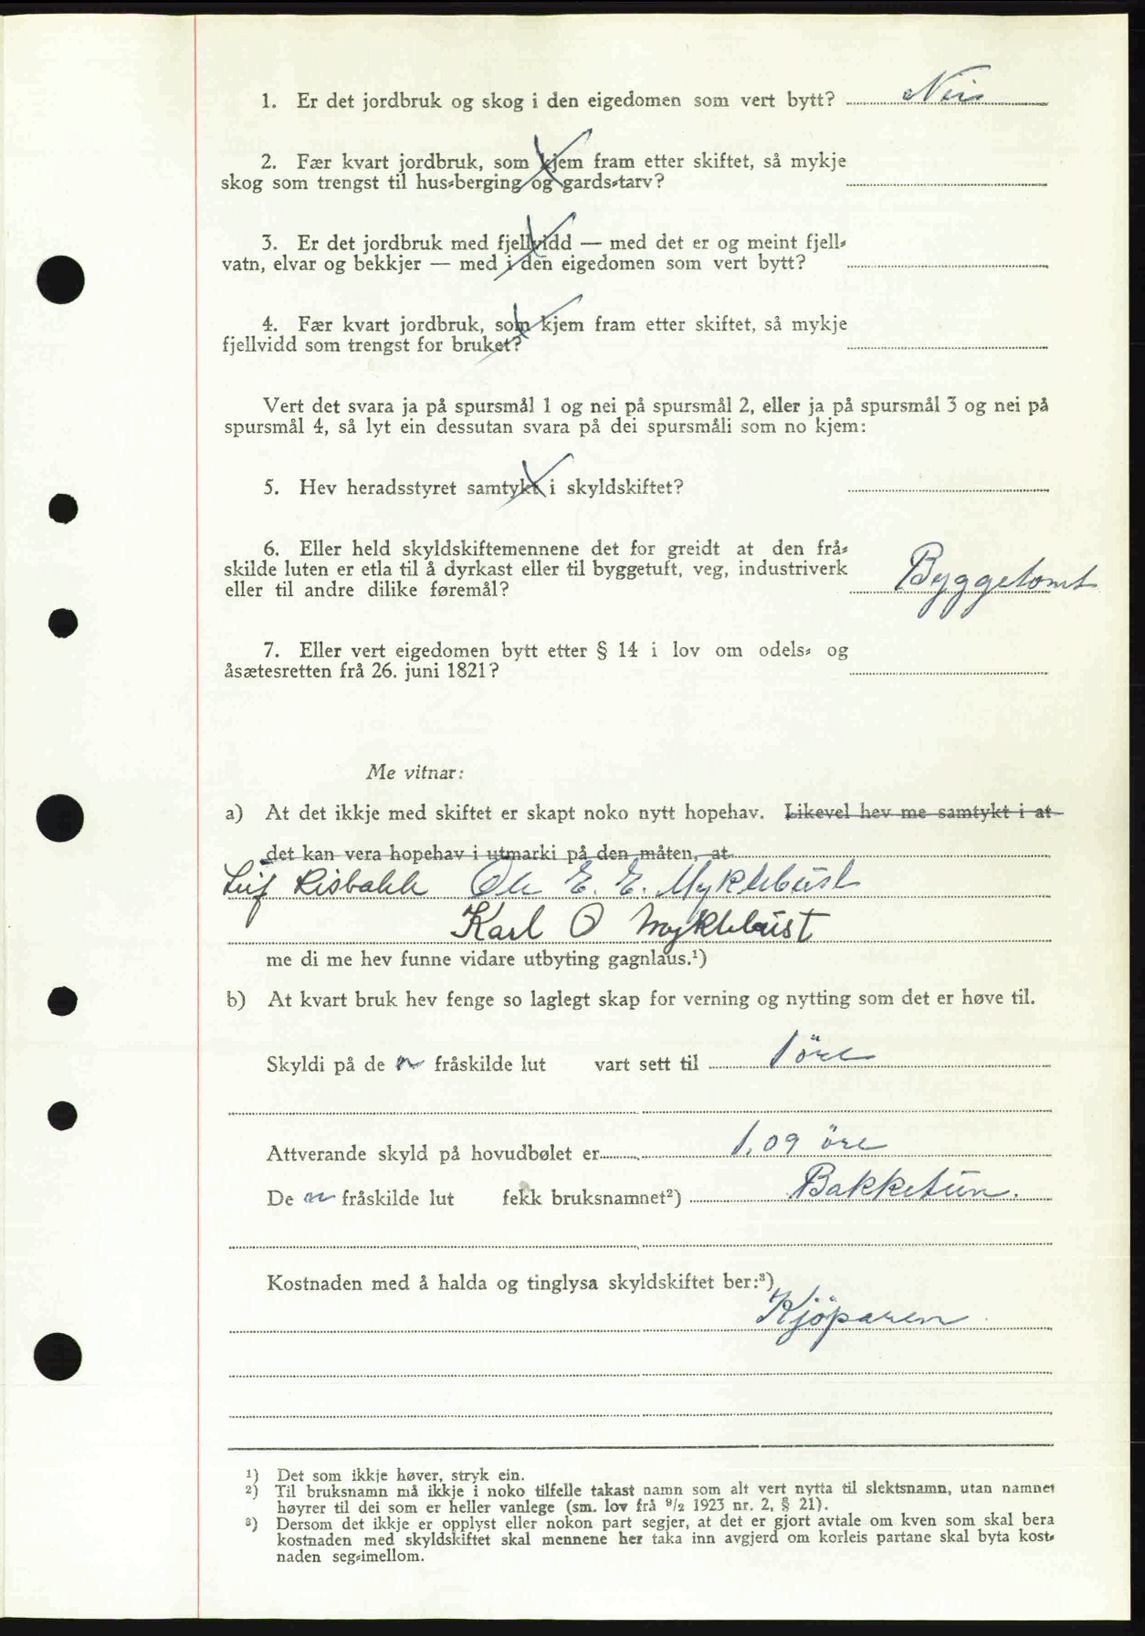 1. Er det jordbruk og skog i den eigedomen som vert bytt? Nei
2. Fær kvart jordbruk, som kjem fram etter skiftet, så mykje
skog som trengst til hus-berging og gards-tarv?
3. Er det jordbruk med fjellvidd — med det er og meint fjell-
vatn, elvar og bekkjer — med i den eigedomen som vert bytt?
4. Fær kvart jordbruk, som kjem fram etter skiftet, så mykje
fjellvidd som trengst for bruket?
Vert det svara ja på spursmål 1 og nei på spursmål 2, eller ja på spursmål 3 og nei på
spursmål 4, så lyt ein dessutan svara på dei spursmåli som no kjem:
5. Hev heradsstyret samtykt i skyldskiftet?
6. Eller held skyldskiftemennene det for greidt at den frå-
skilde luten er etla til å dyrkast eller til byggetuft, veg, industriverk
eller til andre dilike føremål? Byggetomt
7. Eller vert eigedomen bytt etter § 14 i lov om odels- og
åsætesretten frå 26. juni 1821?
Me vitnar:
a) At det ikkje med skiftet er skapt noko nytt hopehav. Likevel hev me samtykt i at
det kan vera hopehav i utmarki på den måten, at
Leif Risbakk Ole E. E. Myklebust
Karl O Myklebust
me di me hev funne vidare utbyting gagnlaus.¹)
b) At kvart bruk hev fenge so laglegt skap for verning og nytting som det er høve til.
Skyldi på de n fråskilde lut vart sett til 1 öre
Attverande skyld på hovudbølet er 1,09 öre
De n fråskilde lut fekk bruksnamnet²) Bakketun.
Kostnaden med å halda og tinglysa skyldskiftet ber:³)
Kjöparen
¹) Det som ikkje høver, stryk ein.
²) Til bruksnamn må ikkje i noko tilfelle takast namn som alt vert nytta til slektsnamn, utan namnet
høyrer til dei som er heller vanlege (sm. lov frå ⁹/₂ 1923 nr. 2, § 21).
³) Dersom det ikkje er opplyst eller nokon part segjer, at det er gjort avtale om kven som skal bera
kostnaden med skyldskiftet skal mennene her taka inn avgjerd om korleis partane skal byta kost-
naden seg-imellom.